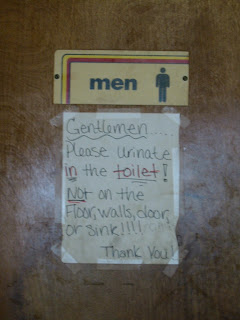 men
Gentlemen.....
Please Urinate
in the toilet!
Not on the
Floor, walls, door,
or sink!!!!
Thank You!